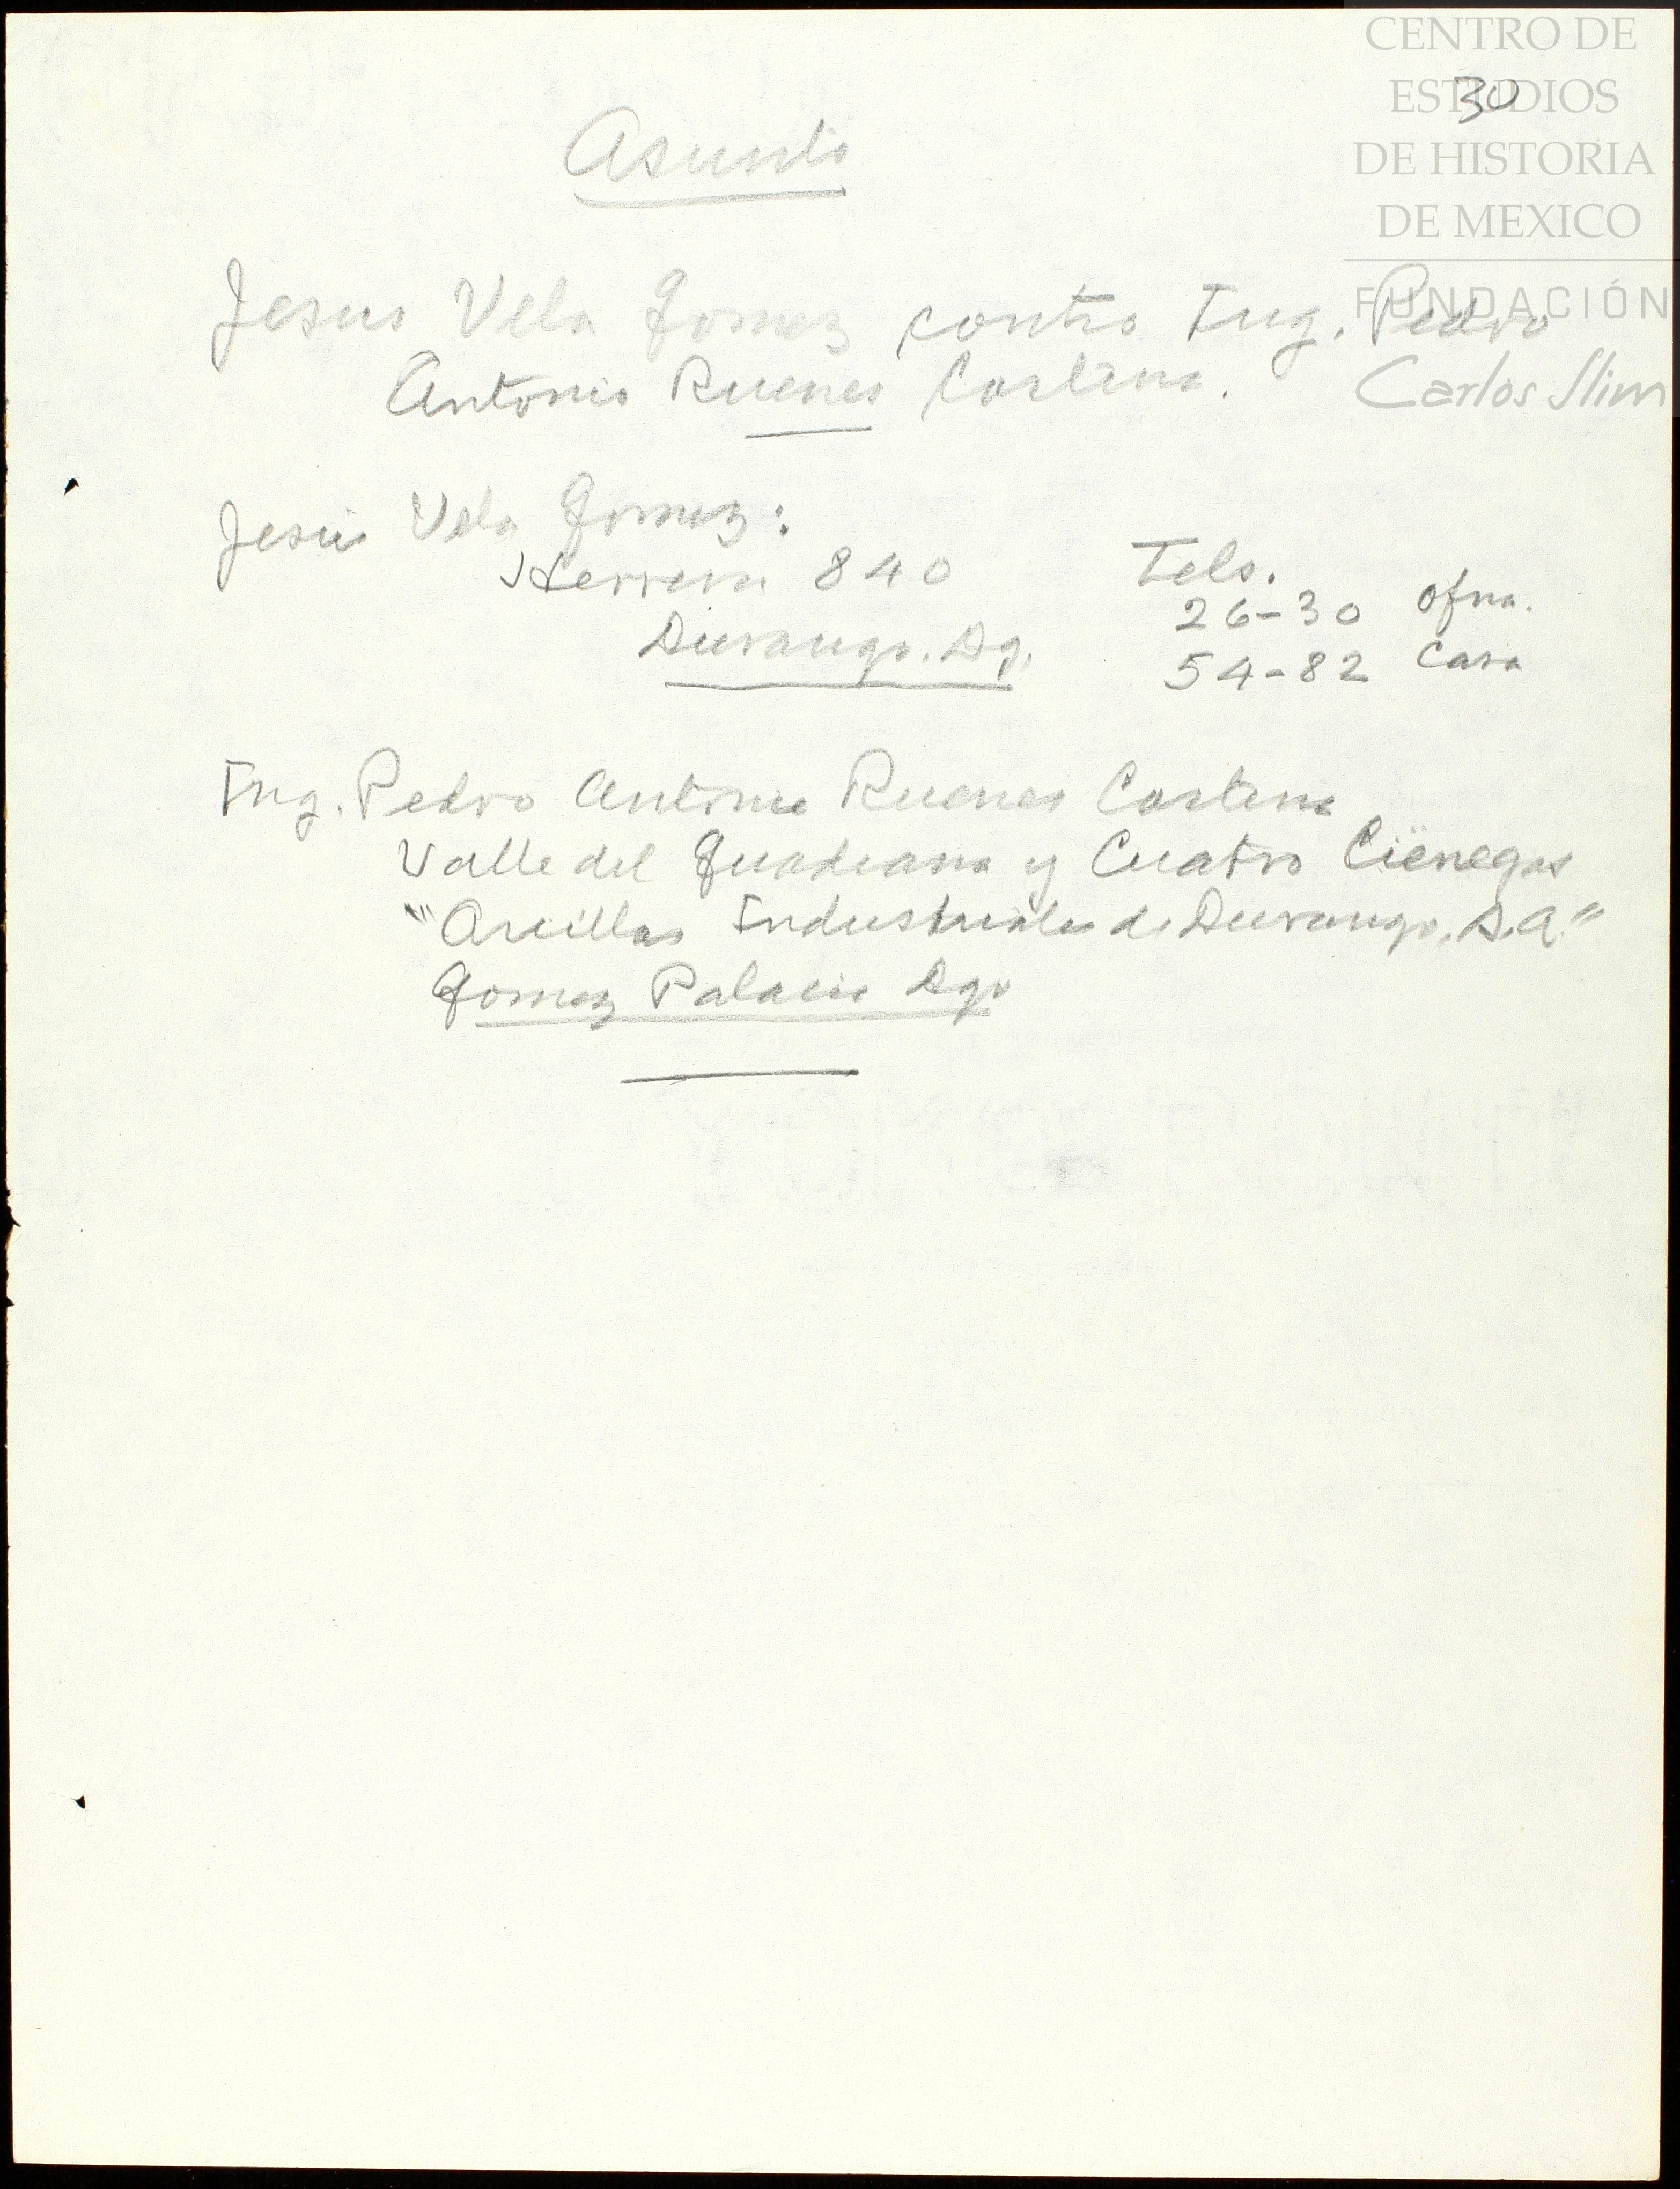 CENTRO DE
ESTUDIOS
DE HISTORIA
DE MEXICO
FUNDACIÓN
Carlos Slim
30
Asunto
Jesus Vela Gomez contra Ing. Pedro
Antonio Ruenes Cortina.
Jesús Vela Gomez:
Herrera 840
Durango. Dg.
Tels.
26-30 Ofna.
54-82 Casa
Ing. Pedro Antonio Ruenes Cortina
Valle del Guadiana y Cuatro Ciénegas
"Arcillas Industriales de Durango, S.A."
Gomez Palacio Dgo